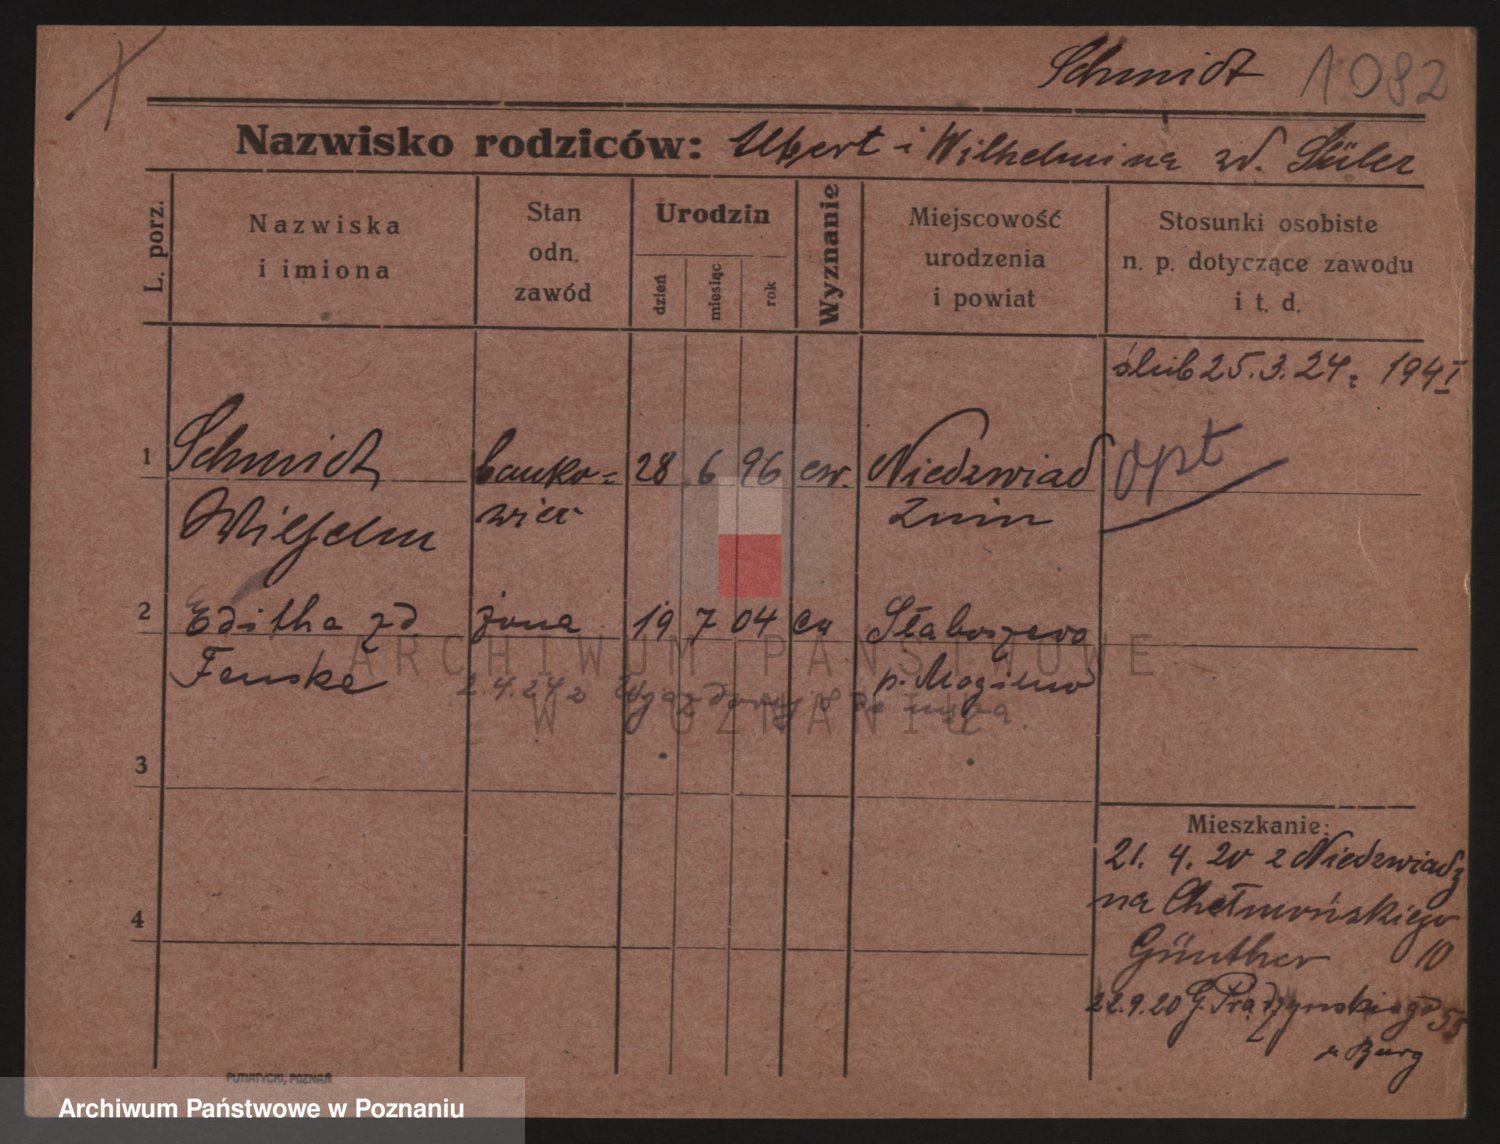 Schmidt 1082
Nazwisko rodziców: Albert i Wilhelmina zd. Stüler
L. porz.
Nazwiska
i imiona
Stan
odn.
zawód
Urodzin
dzień
miesiąc
rok
Wyznanie
Miejscowość
urodzenia
i powiat
Stosunki osobiste
n. p. dotyczące zawodu
i t. d.
ślub 25.3.24
1 Schmidt banko= 28 6 96 ew. Niedzwiad opt
Wilhelm wier Znin
2 Editha zd żona 19 7 04 ew Słaboszewo
Fenske p. Mogilno
2.4.24
3
4
Mieszkanie:
21. 4. 20 z Niedzwiady
na Chełmońskiego
Günther 10
22.9.20 G. Prądzyńskiego 55
u Burg
PUTIATYCKI, POZNAŃ
ARCHIWUM PAŃSTWOWE
W POZNANIU
Archiwum Państwowe w Poznaniu